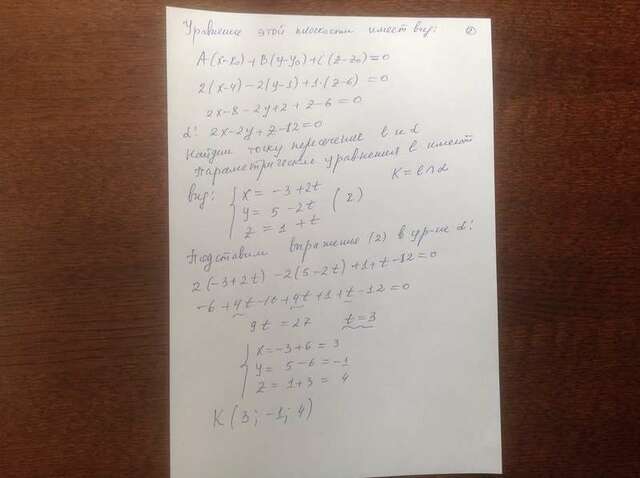 Уравнение этой плоскости имеет вид: ②
A(x-x₀)+B(y-y₀)+C(z-z₀)=0
2(x-4)-2(y-1)+1·(z-6)=0
2x-8-2y+2+z-6=0
α: 2x-2y+z-12=0
Найдем точку пересечение ℓ и α
Параметрические уравнения ℓ имеют
вид: { x = -3+2t
y = 5-2t (2) K=ℓ∩α
z = 1+t
Подставим выражение (2) в ур-ие α:
2(-3+2t)-2(5-2t)+1+t-12=0
-6+4t-10+4t+1+t-12=0
9t=27 t=3
{ x=-3+6=3
y=5-6=-1
z=1+3=4
K(3;-1;4)